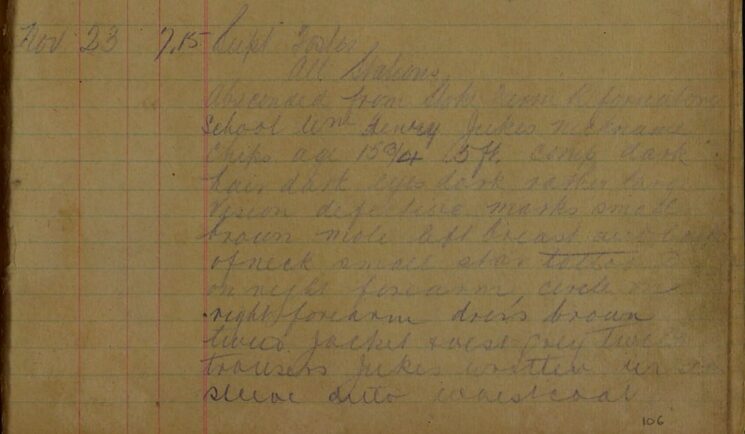 Nov 23 7.15 Supt Foster
All Stations
Absconded from Stoke Farm Reformatory
School Wm Henry Jukes nickname
Chips age 15 3/4 5 ft comp dark
hair dark eyes dark rather large
vision defective marks small
brown mole left breast and back
of neck small star tattooed
on right forearm, circle on
right forearm dress brown
tweed jacket & vest grey tweed
trousers Jukes written in
sleeve ditto waistcoat
106